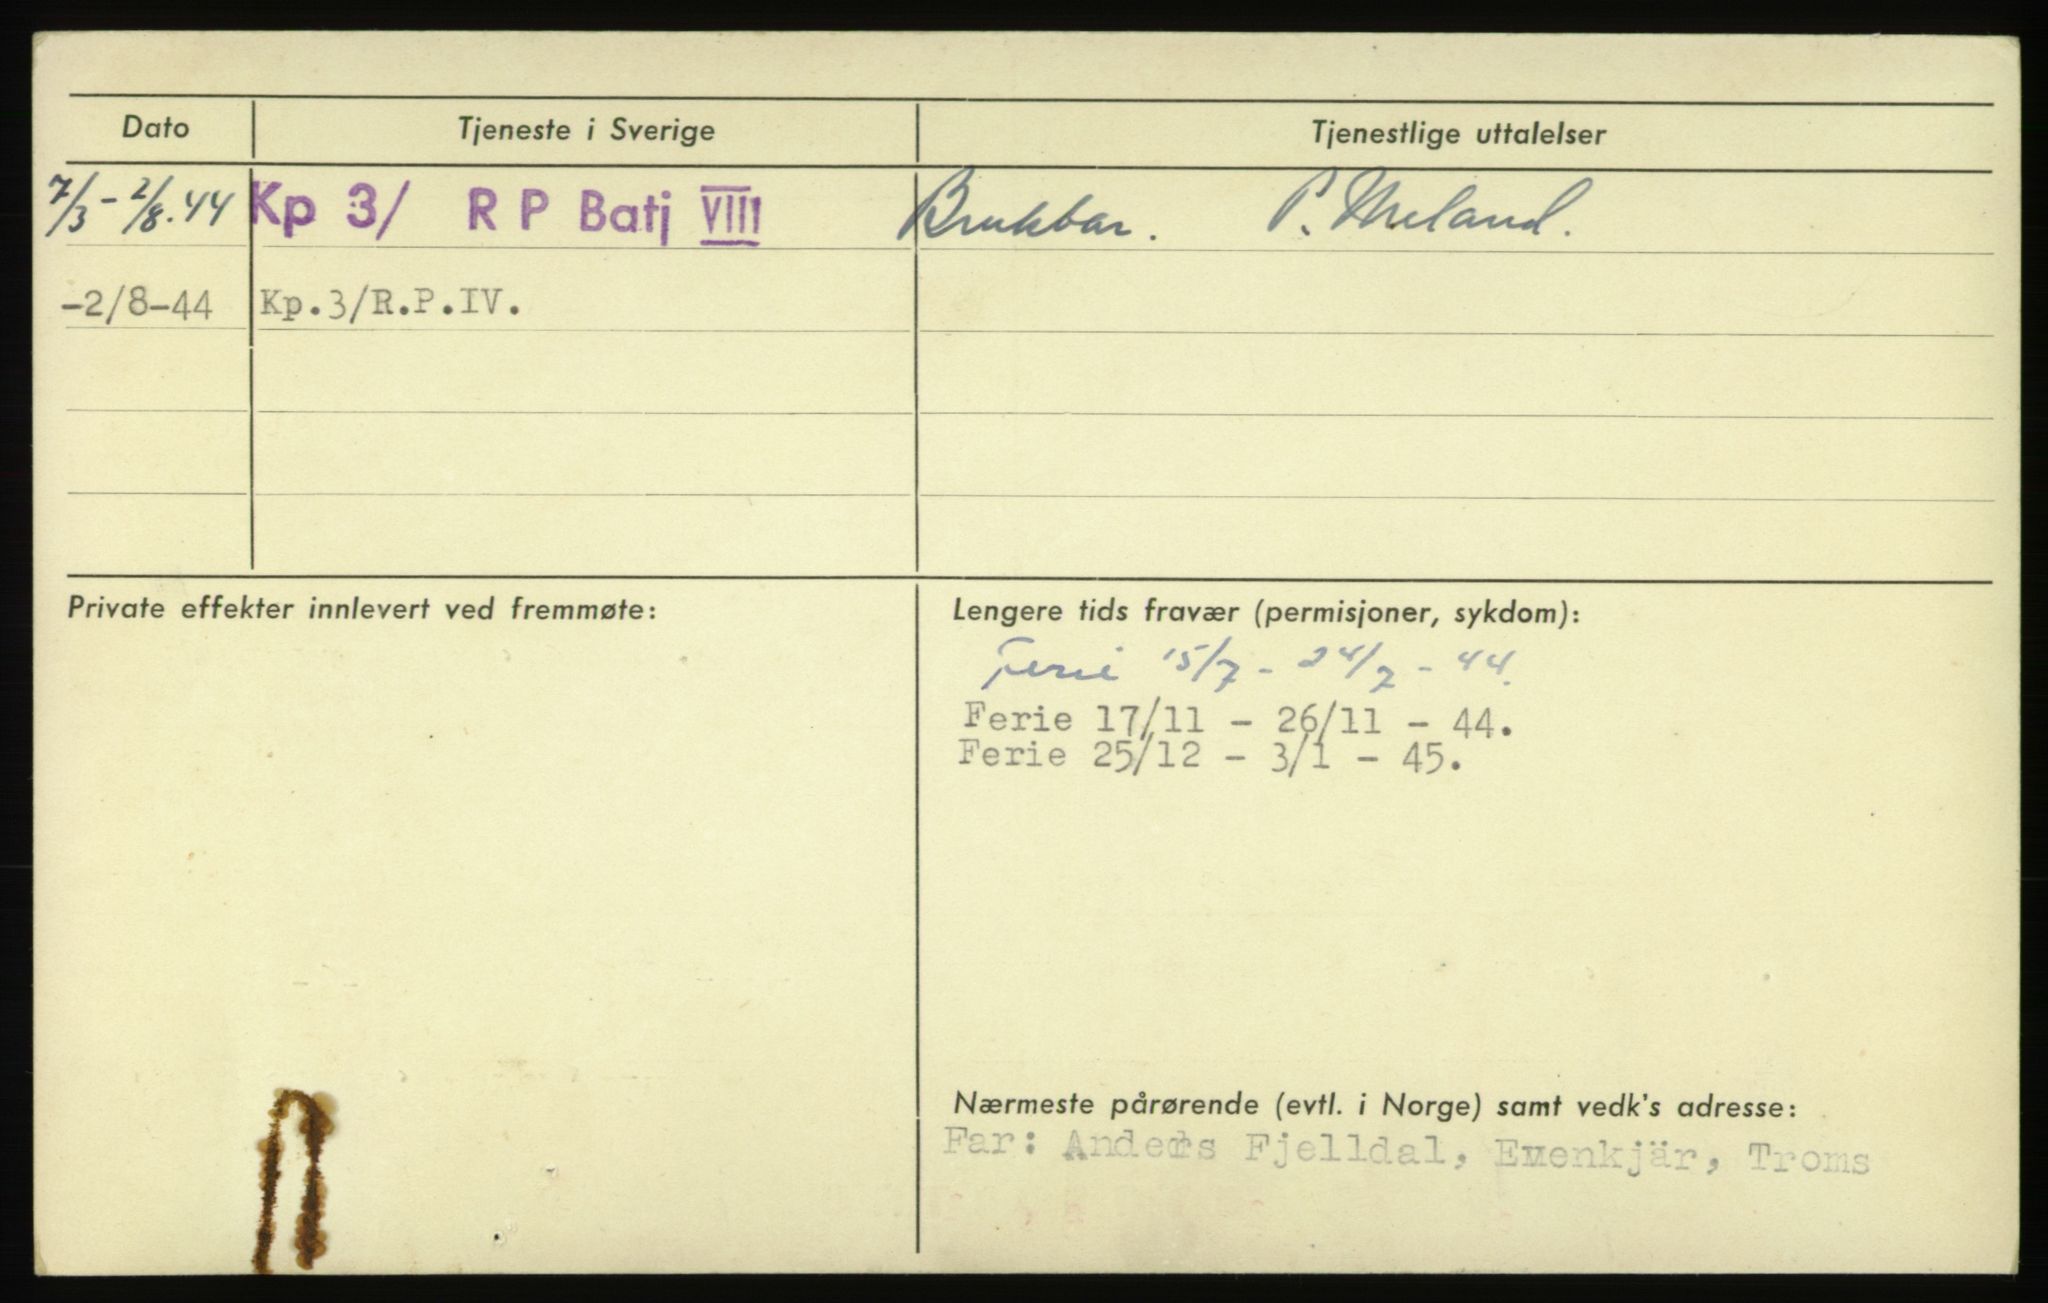 Dato Tjeneste i Sverige Tjenestlige uttalelser
7/3 - 2/8. 44 Kp 3/ R P Batj VIII Brukbar. P. Meland.
-2/8-44 Kp.3/R.P.IV.
Private effekter innlevert ved fremmøte:
Lengere tids fravær (permisjoner, sykdom):
Ferie 15/7 - 24/7 - 44.
Ferie 17/11 - 26/11 - 44.
Ferie 25/12 - 3/1 - 45.
Nærmeste pårørende (evtl. i Norge) samt vedk's adresse:
Far: Anders Fjelldal, Evenkjär, Troms